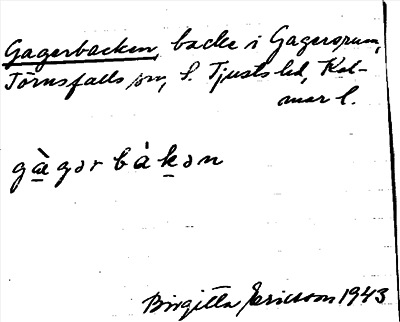 Gagerbacken, backe i Gagersrum,
Törnsfalls sn, S. Tjusts hd, Kal-
mar l.
gà̠gər bàk̠ən
Birgitta Ericsson 1943